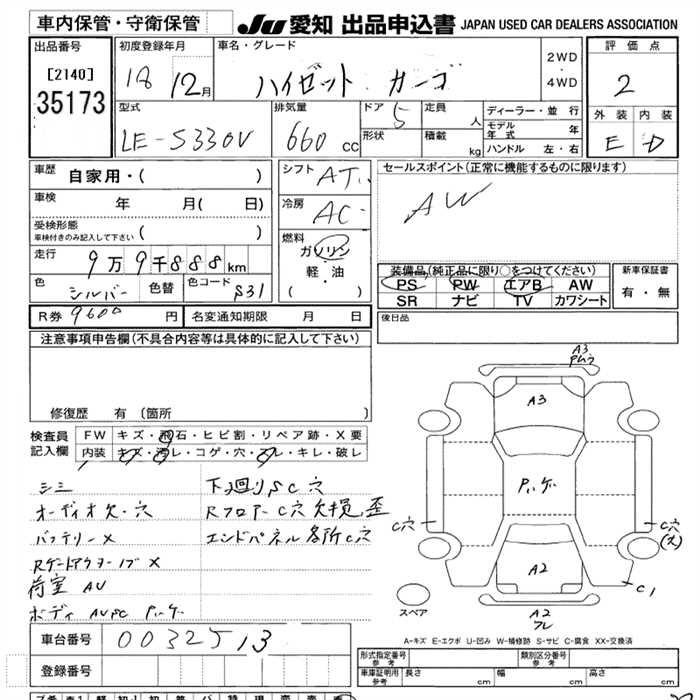 車内保管・守衛保管
JU 愛知 出品申込書 JAPAN USED CAR DEALERS ASSOCIATION
出品番号
[2140]
35173
初度登録年月
18 12月
車名・グレード
ハイゼット カーゴ
2WD
・
4WD
評価点
2
外装 内装
E D
型式
LE-S330V
排気量
660 cc
ドア 5
形状
定員 人
積載 kg
ディーラー・並行
モデル年式 年
ハンドル 左・右
車歴 自家用・( )
車検 年 月( 日)
受検形態
車検付きのみ記入して下さい ( )
走行 9万9千888km
色 シルバー 色替 色コード S31
R券 9600 円 名変通知期限 月 日
シフト AT
冷房 AC
燃料
ガソリン
軽・油
( ・ )
セールスポイント(正常に機能するものに限ります)
AW
装備品(純正品に限り○をつけてください)
PS PW エアB AW
SR ナビ TV カワシート
新車保証書
有・無
後日品
注意事項申告欄(不具合内容等は具体的に記入して下さい)
修復歴 有 (箇所 )
検査員記入欄
FW キズ・飛石・ヒビ割・リペア跡・X要
内装 キズ・汚レ・コゲ・穴・スレ・キレ・破レ
シミ 下廻りSC穴
オーディオ欠・穴 Rフロアーc穴 欠損,歪
バッテリーX エンドパネル各所c穴
荷室 AU
ボディ
A3
A3
A2
A2
フレ
C穴
C穴
C1
スペア
A-キズ E-エクボ U-凹み W-補修跡 S-サビ C-腐食 XX-交換済
車台番号 0032513
登録番号
形式指定番号 参考
類別区分番号 参考
車庫証明用 参考 長さ cm 幅 cm 高さ cm